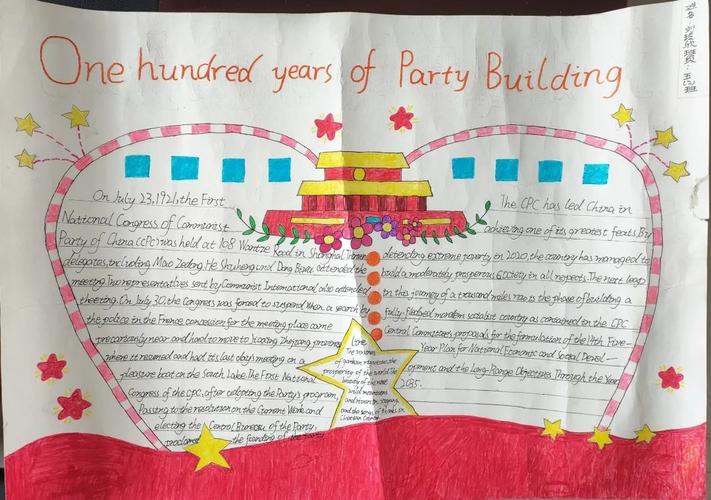 One hundred years of Party Building
姓名:刘 欣 班级:五 班
On July 23,1921,the First
National Congress of Communist
Party of China (CPC) was held at 108 Wantze Road in Shanghai. Thirteen
delegates, including Mao Zedong, He Shuheng and Dong Biwu, attended the
meeting. Two representatives sent by Communist International also attended
the eting. On July 30, the Congress was forced to suspend when a search by
the police in the French concession for the meeting place came
precariously near and had to move to Jiaxing Zhejiang province
where it resumed and had its last day's meeting on a
pleasure boat on the South Lake. The First National
Congress of the CPC, after adopting the Party's program,
Passing to the resolution on the Current Work and
electing the Central Bureau of the Party,
proclaimed the founding of the Party
The CPC has led China in
achieving one of its greatest feats. By
defending extreme poverty in 2020, the country has managed to
build a moderately prosperous Society in all respects. The next leap
in this journey of a thousand miles now is the phase of building a
fully-fledged mordern socialist country as contained in the CPC
Central Committee's proposals for the formulation of the 14th Five-
Year Plan for National Economic and Social Devel-
opment and the Long-Range Objectives Through the Year
2035.
Love
The
of
prosperity of the world. The
beauty of the
wild mountains
and rivers
and the songs of